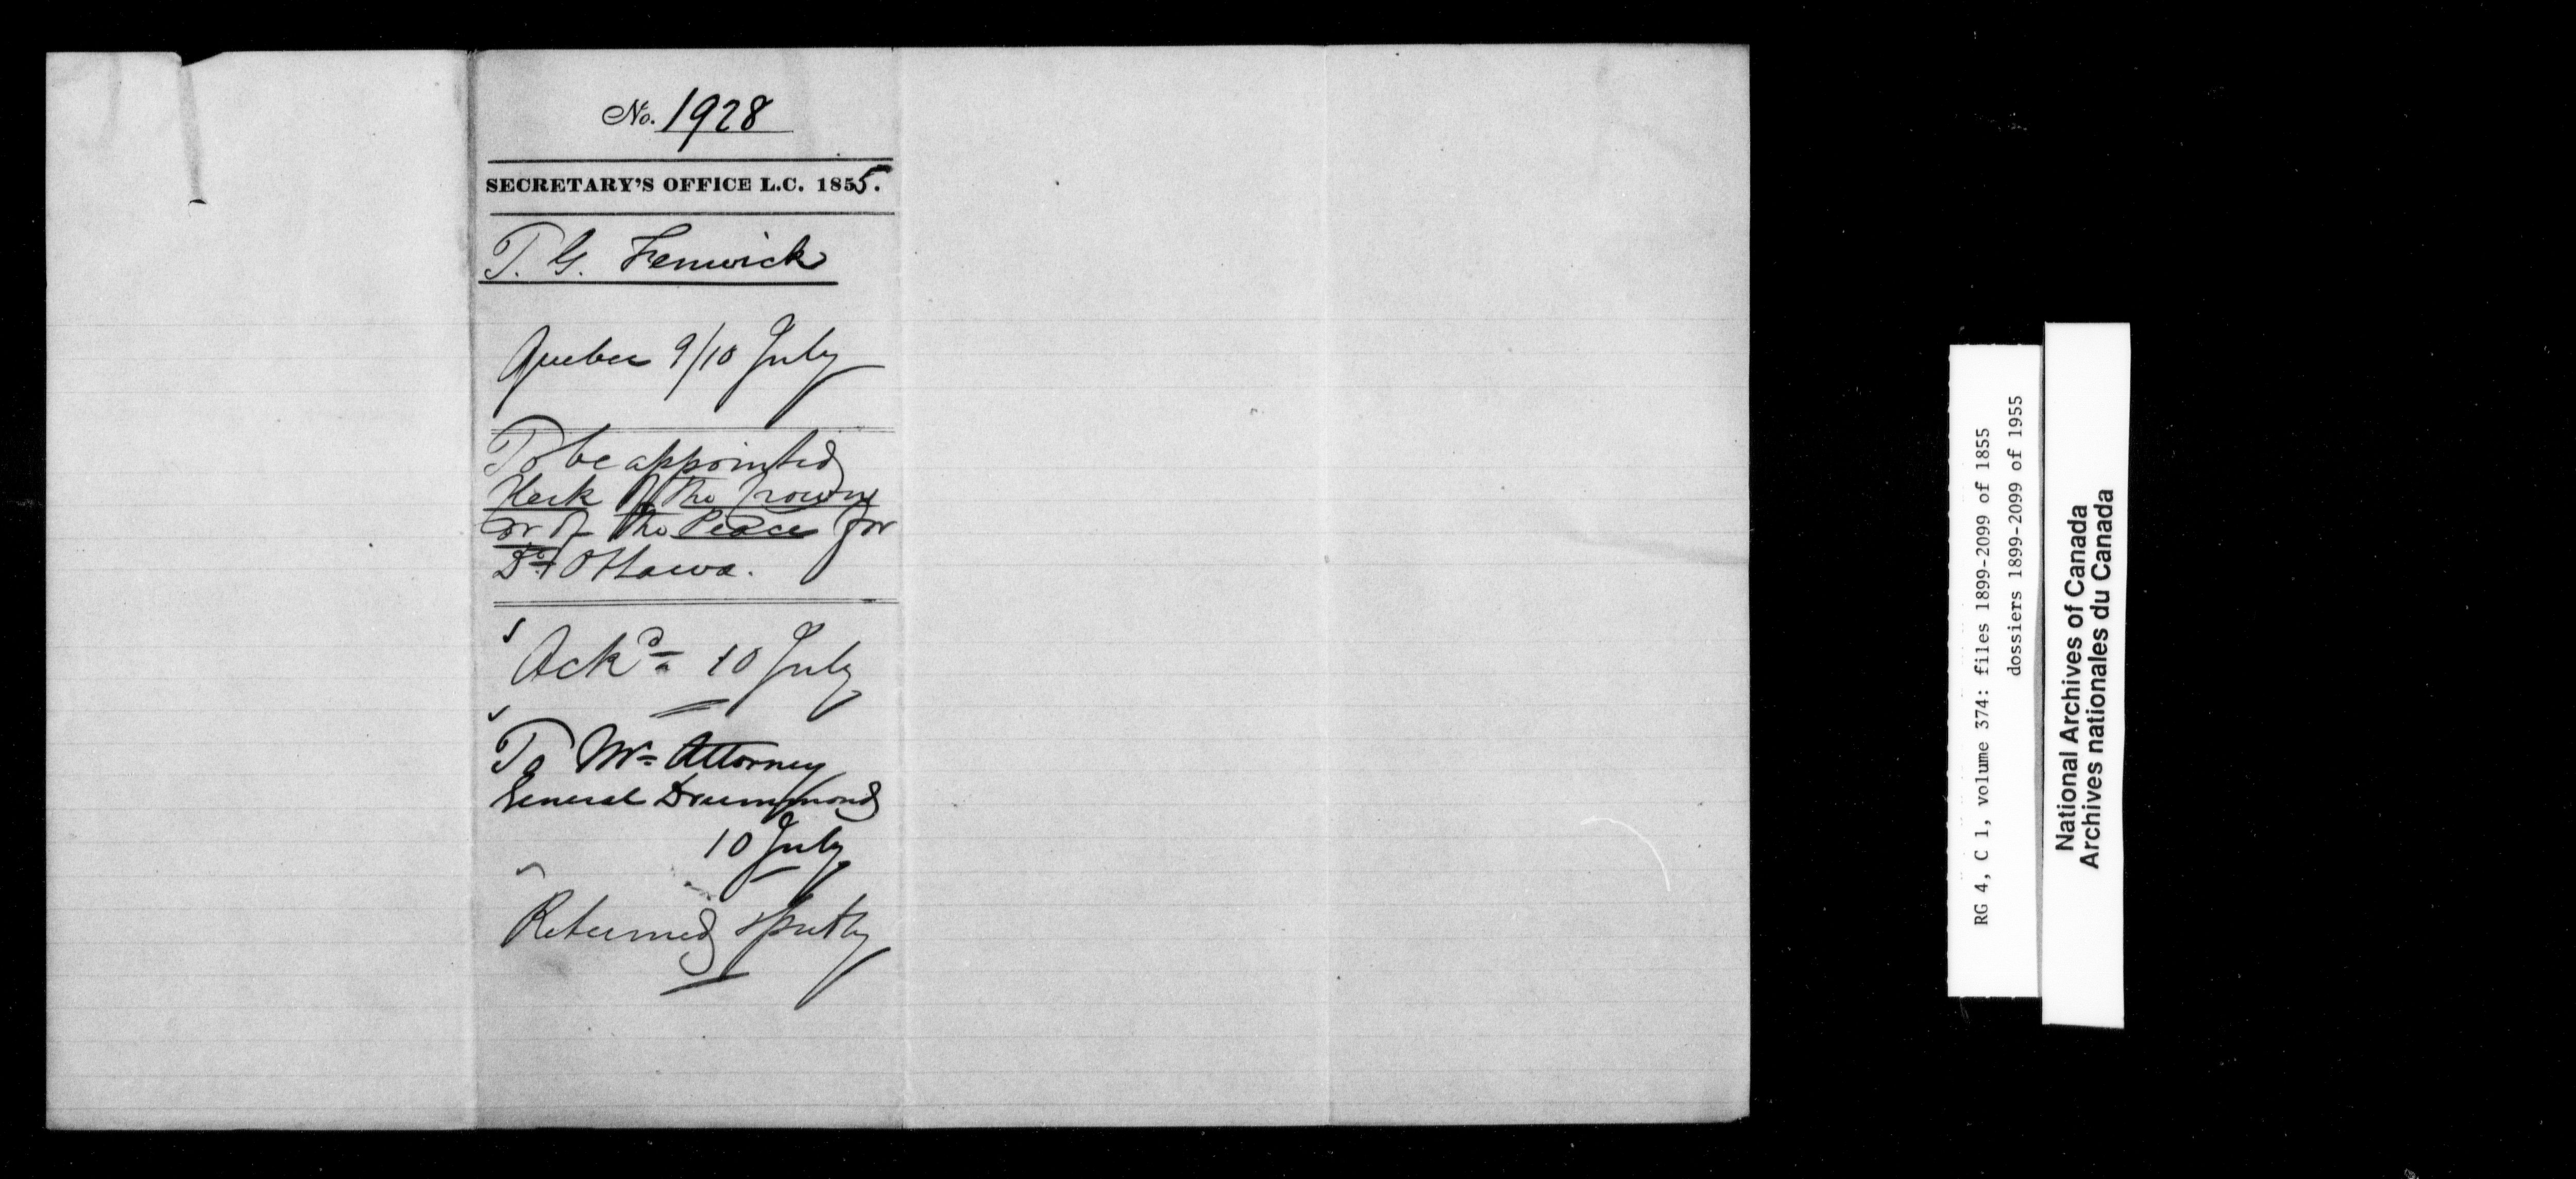 No. 1928
SECRETARY'S OFFICE L.C. 1855.
T. G. Fenwick
Quebec 9/10 July
To be appointed
Clerk of the Crown
or of the Peace for
Dt Ottawa.
Ackd 10 July
To Mr Attorney
General Drummond
10 July
Returned
RG 4, C 1, volume 374: files 1899-2099 of 1855
dossiers 1899-2099 of 1955
National Archives of Canada
Archives nationales du Canada